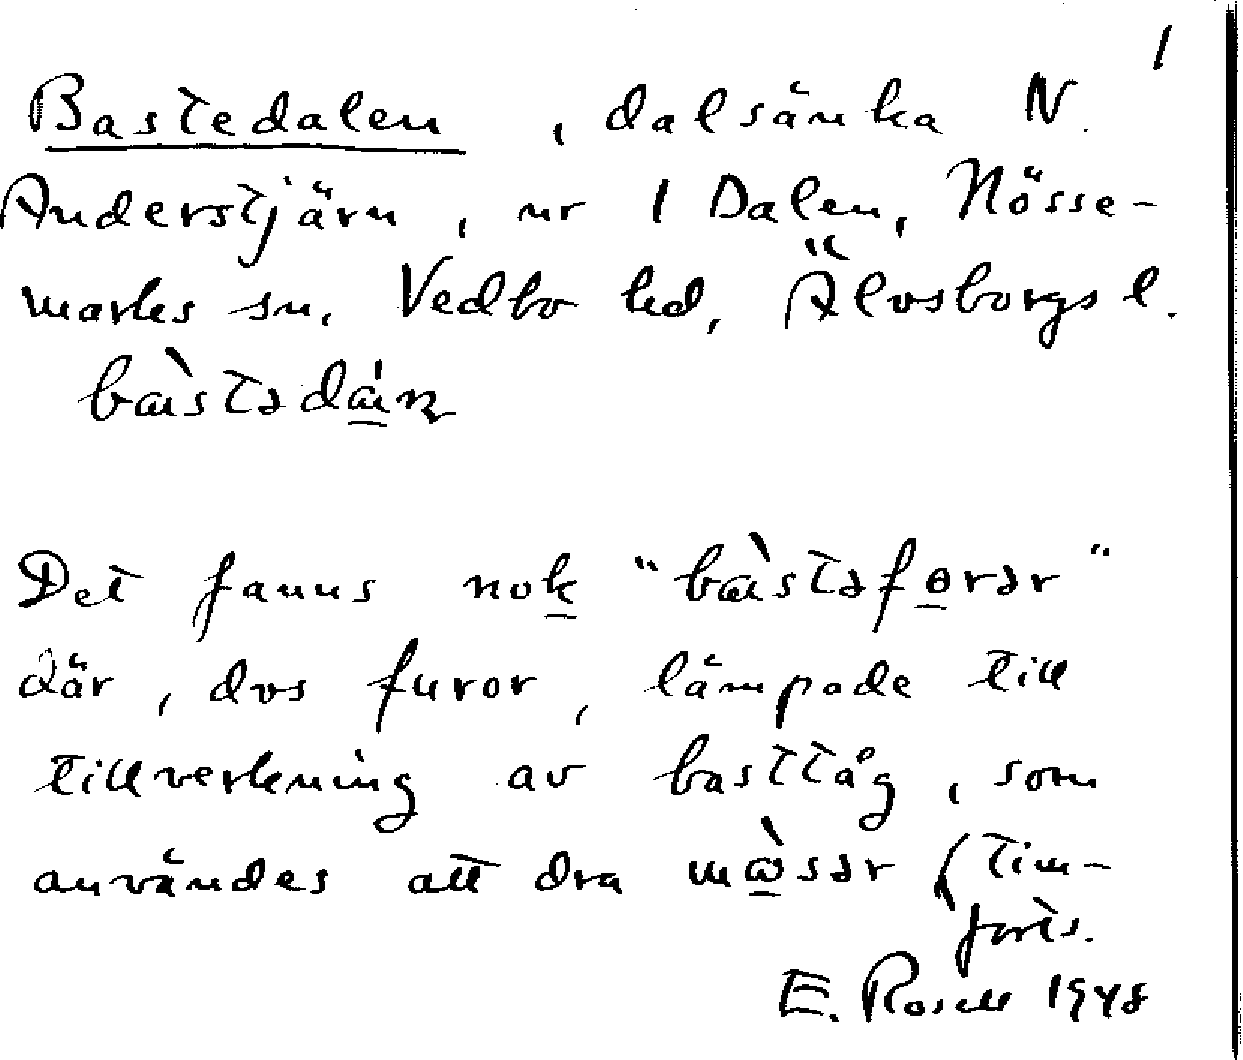 1
Bastedalen, dalsänka N.
Anderstjärn, nr 1 Dalen, Nösse-
marks sn, Vedbo hd, Älvsborgs l.
Det fanns nok "
"
där, dvs furor, lämpade till
tillverkning av basttåg, som
användes att dra (tim-
forts.
E. Rosell 1948